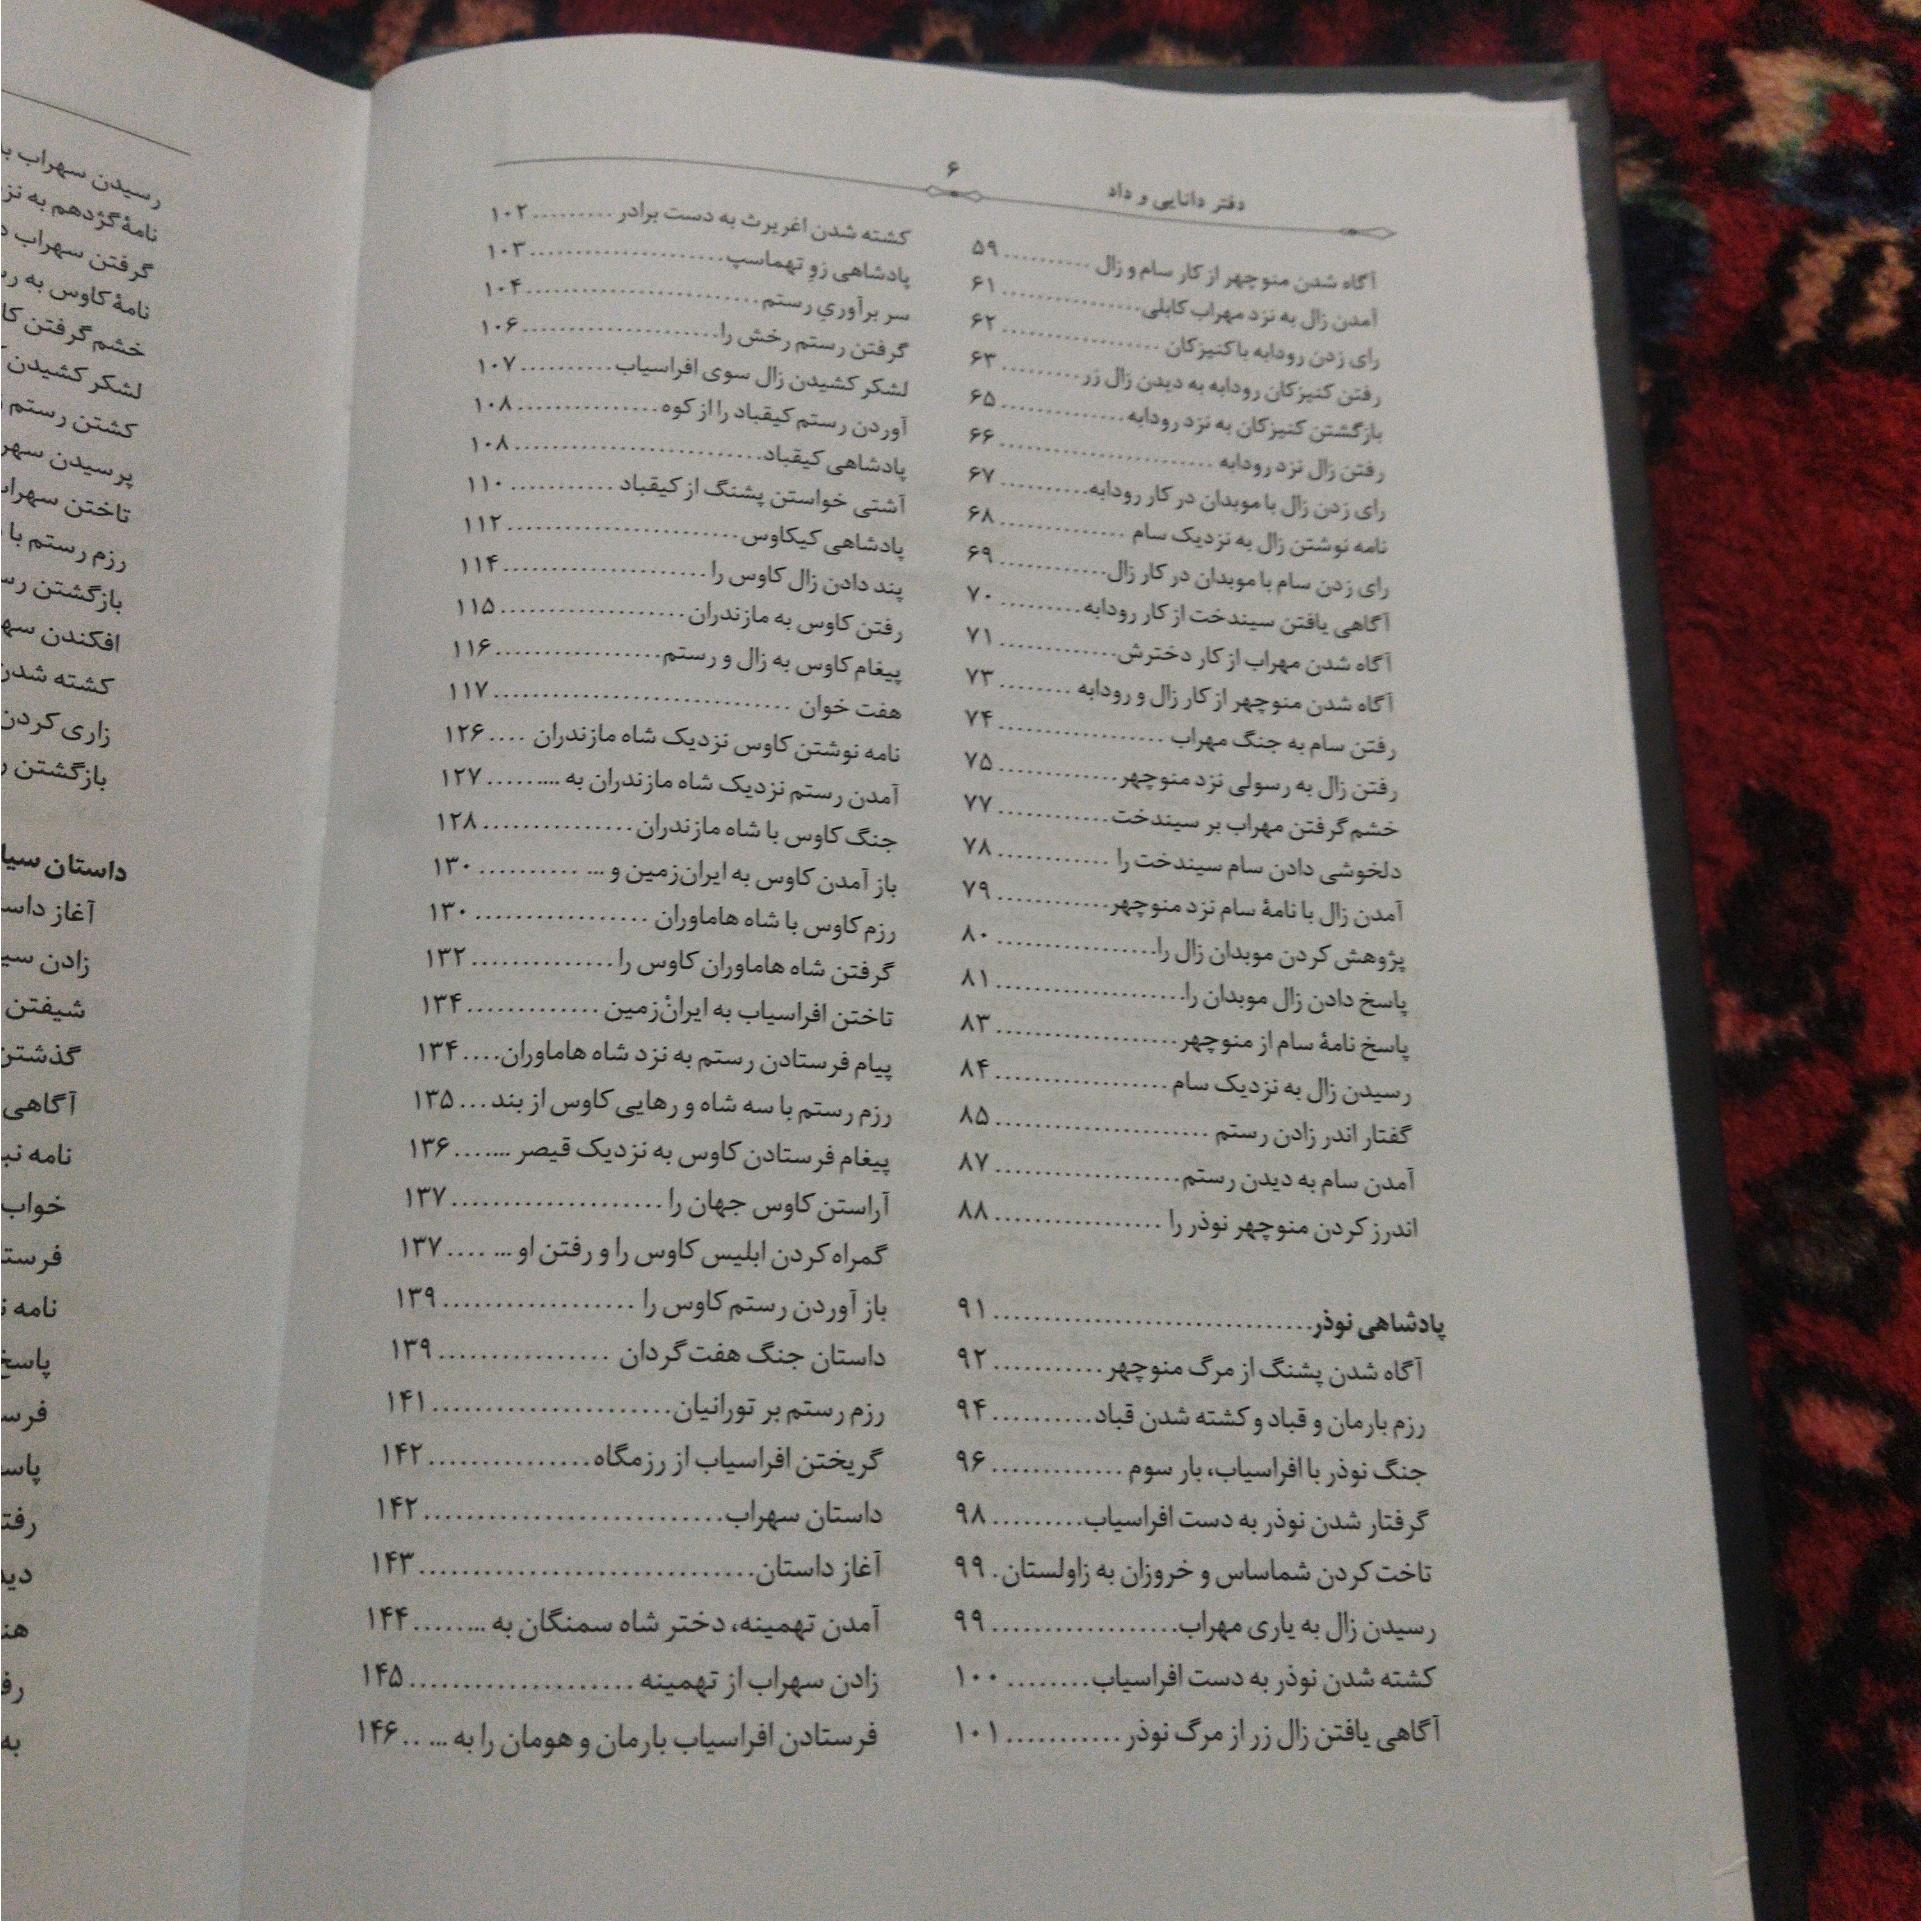 دفتر دانایی و داد
۶
آگاه شدن منوچهر از کار سام و زال .......... ۵۹
آمدن زال به نزد مهراب کابلی ................ ۶۱
رای زدن رودابه با کنیزکان ................ ۶۲
رفتن کنیزکان رودابه به دیدن زال زر ......... ۶۳
بازگشتن کنیزکان به نزد رودابه .............. ۶۵
رفتن زال نزد رودابه ...................... ۶۶
رای زدن زال با موبدان در کار رودابه .......... ۶۷
نامه نوشتن زال به نزدیک سام ............. ۶۸
رای زدن سام با موبدان در کار زال ............ ۶۹
آگاهی یافتن سیندخت از کار رودابه ......... ۷۰
آگاه شدن مهراب از کار دخترش ............. ۷۱
آگاه شدن منوچهر از کار زال و رودابه ........ ۷۳
رفتن سام به جنگ مهراب ................. ۷۴
رفتن زال به رسولی نزد منوچهر ............. ۷۵
خشم گرفتن مهراب بر سیندخت ............ ۷۷
دلخوشی دادن سام سیندخت را ............ ۷۸
آمدن زال با نامهٔ سام نزد منوچهر ............ ۷۹
پژوهش کردن موبدان زال را ................. ۸۰
پاسخ دادن زال موبدان را .................... ۸۱
پاسخ نامهٔ سام از منوچهر ................... ۸۳
رسیدن زال به نزدیک سام .................. ۸۴
گفتار اندر زادن رستم ...................... ۸۵
آمدن سام به دیدن رستم ................... ۸۷
اندرز کردن منوچهر نوذر را ................. ۸۸
پادشاهی نوذر ................................ ۹۱
آگاه شدن پشنگ از مرگ منوچهر ........... ۹۲
رزم بارمان و قباد و کشته شدن قباد .......... ۹۴
جنگ نوذر با افراسیاب، بار سوم ............. ۹۶
گرفتار شدن نوذر به دست افراسیاب ......... ۹۸
تاخت کردن شماساس و خروزان به زاولستان . ۹۹
رسیدن زال به یاری مهراب .................. ۹۹
کشته شدن نوذر به دست افراسیاب ........ ۱۰۰
آگاهی یافتن زال زر از مرگ نوذر ........... ۱۰۱
کشته شدن اغریرث به دست برادر ......... ۱۰۲
پادشاهی زوِ تهماسپ .................... ۱۰۳
سر برآوریِ رستم ........................ ۱۰۴
گرفتن رستم رخش را .................... ۱۰۶
لشکر کشیدن زال سوی افراسیاب .......... ۱۰۷
آوردن رستم کیقباد را از کوه ............... ۱۰۸
پادشاهی کیقباد .......................... ۱۰۸
آشتی خواستن پشنگ از کیقباد ........... ۱۱۰
پادشاهی کیکاوس ........................ ۱۱۲
پند دادن زال کاوس را ..................... ۱۱۴
رفتن کاوس به مازندران ................... ۱۱۵
پیغام کاوس به زال و رستم ................. ۱۱۶
هفت خوان ............................. ۱۱۷
نامه نوشتن کاوس نزدیک شاه مازندران .... ۱۲۶
آمدن رستم نزدیک شاه مازندران به ... ...... ۱۲۷
جنگ کاوس با شاه مازندران ............... ۱۲۸
باز آمدن کاوس به ایران‌زمین و ... .......... ۱۳۰
رزم کاوس با شاه هاماوران ................. ۱۳۰
گرفتن شاه هاماوران کاوس را .............. ۱۳۲
تاختن افراسیاب به ایرانْ‌زمین ............. ۱۳۴
پیام فرستادن رستم به نزد شاه هاماوران .... ۱۳۴
رزم رستم با سه شاه و رهایی کاوس از بند ... ۱۳۵
پیغام فرستادن کاوس به نزدیک قیصر ... .... ۱۳۶
آراستن کاوس جهان را ..................... ۱۳۷
گمراه کردن ابلیس کاوس را و رفتن او ... .... ۱۳۷
باز آوردن رستم کاوس را ................... ۱۳۹
داستان جنگ هفت گردان ................. ۱۳۹
رزم رستم بر تورانیان ....................... ۱۴۱
گریختن افراسیاب از رزمگاه ................ ۱۴۲
داستان سهراب ............................. ۱۴۲
آغاز داستان ................................ ۱۴۳
آمدن تهمینه، دختر شاه سمنگان به ... ..... ۱۴۴
زادن سهراب از تهمینه ..................... ۱۴۵
فرستادن افراسیاب بارمان و هومان را به ... .. ۱۴۶
رسیدن سهراب
نامهٔ گژدهم به
گرفتن سهراب
نامهٔ کاوس به
خشم گرفتن
لشکر کشیدن
کشتن رستم
پرسیدن
تاختن
رزم رستم با
بازگشتن
افکندن
کشته شدن
زاری کردن
بازگشتن
داستان
آغاز
زادن
شیفتن
گذشتن
آگاهی
نامه
خواب
نامه